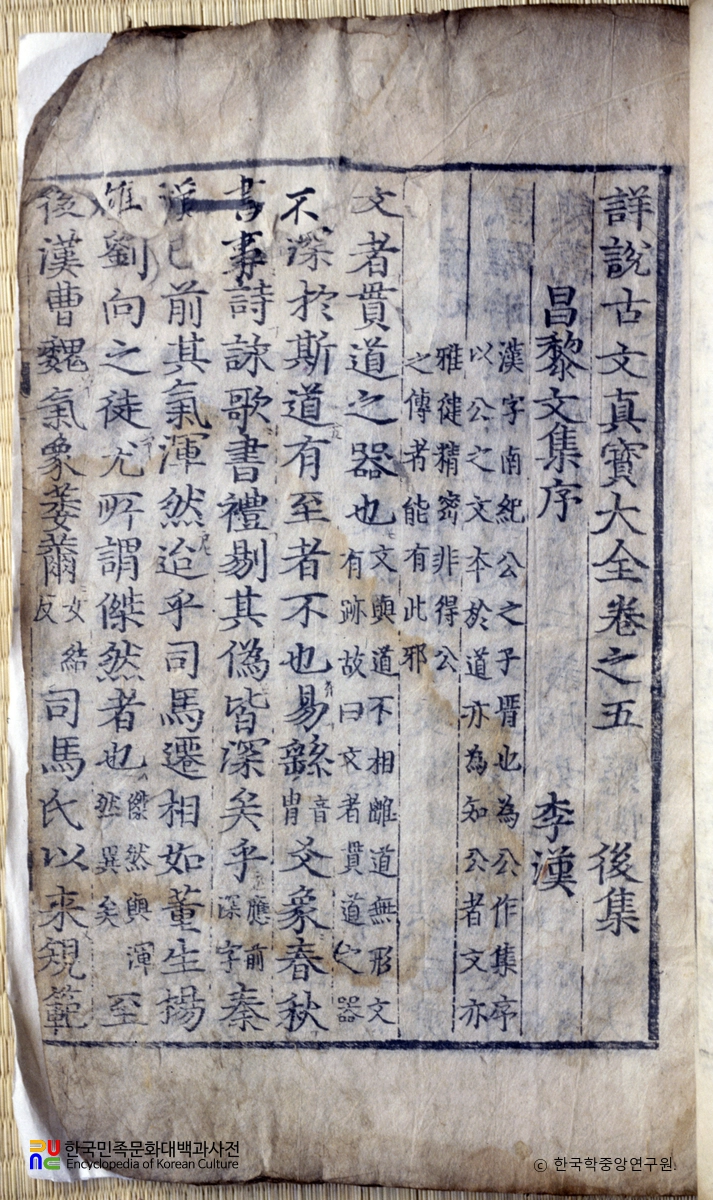 詳說古文真寳大全卷之五 後集
昌黎文集序 李漢
漢字南紀公之子壻也為公作集序
以公之文本於道亦為知公者文亦
雅徤精密非得公
之傳者能有此邪
文者貫道之器也 文與道不相離道無形文 有跡故曰文者貫道之器
不深於斯道有至者不也易繇 音 胄 爻象春秋
書事詩詠歌書禮剔其偽皆深矣乎 應前 深字 秦
漢已前其氣渾然迨乎司馬遷相如董生揚
雄劉向之徒尤所謂傑然者也 傑然與渾 然異矣 至
後漢曹魏氣象萎薾 女結 反 司馬氏以来規範
한국민족문화대백과사전
Encyclopedia of Korean Culture
© 한국학중앙연구원